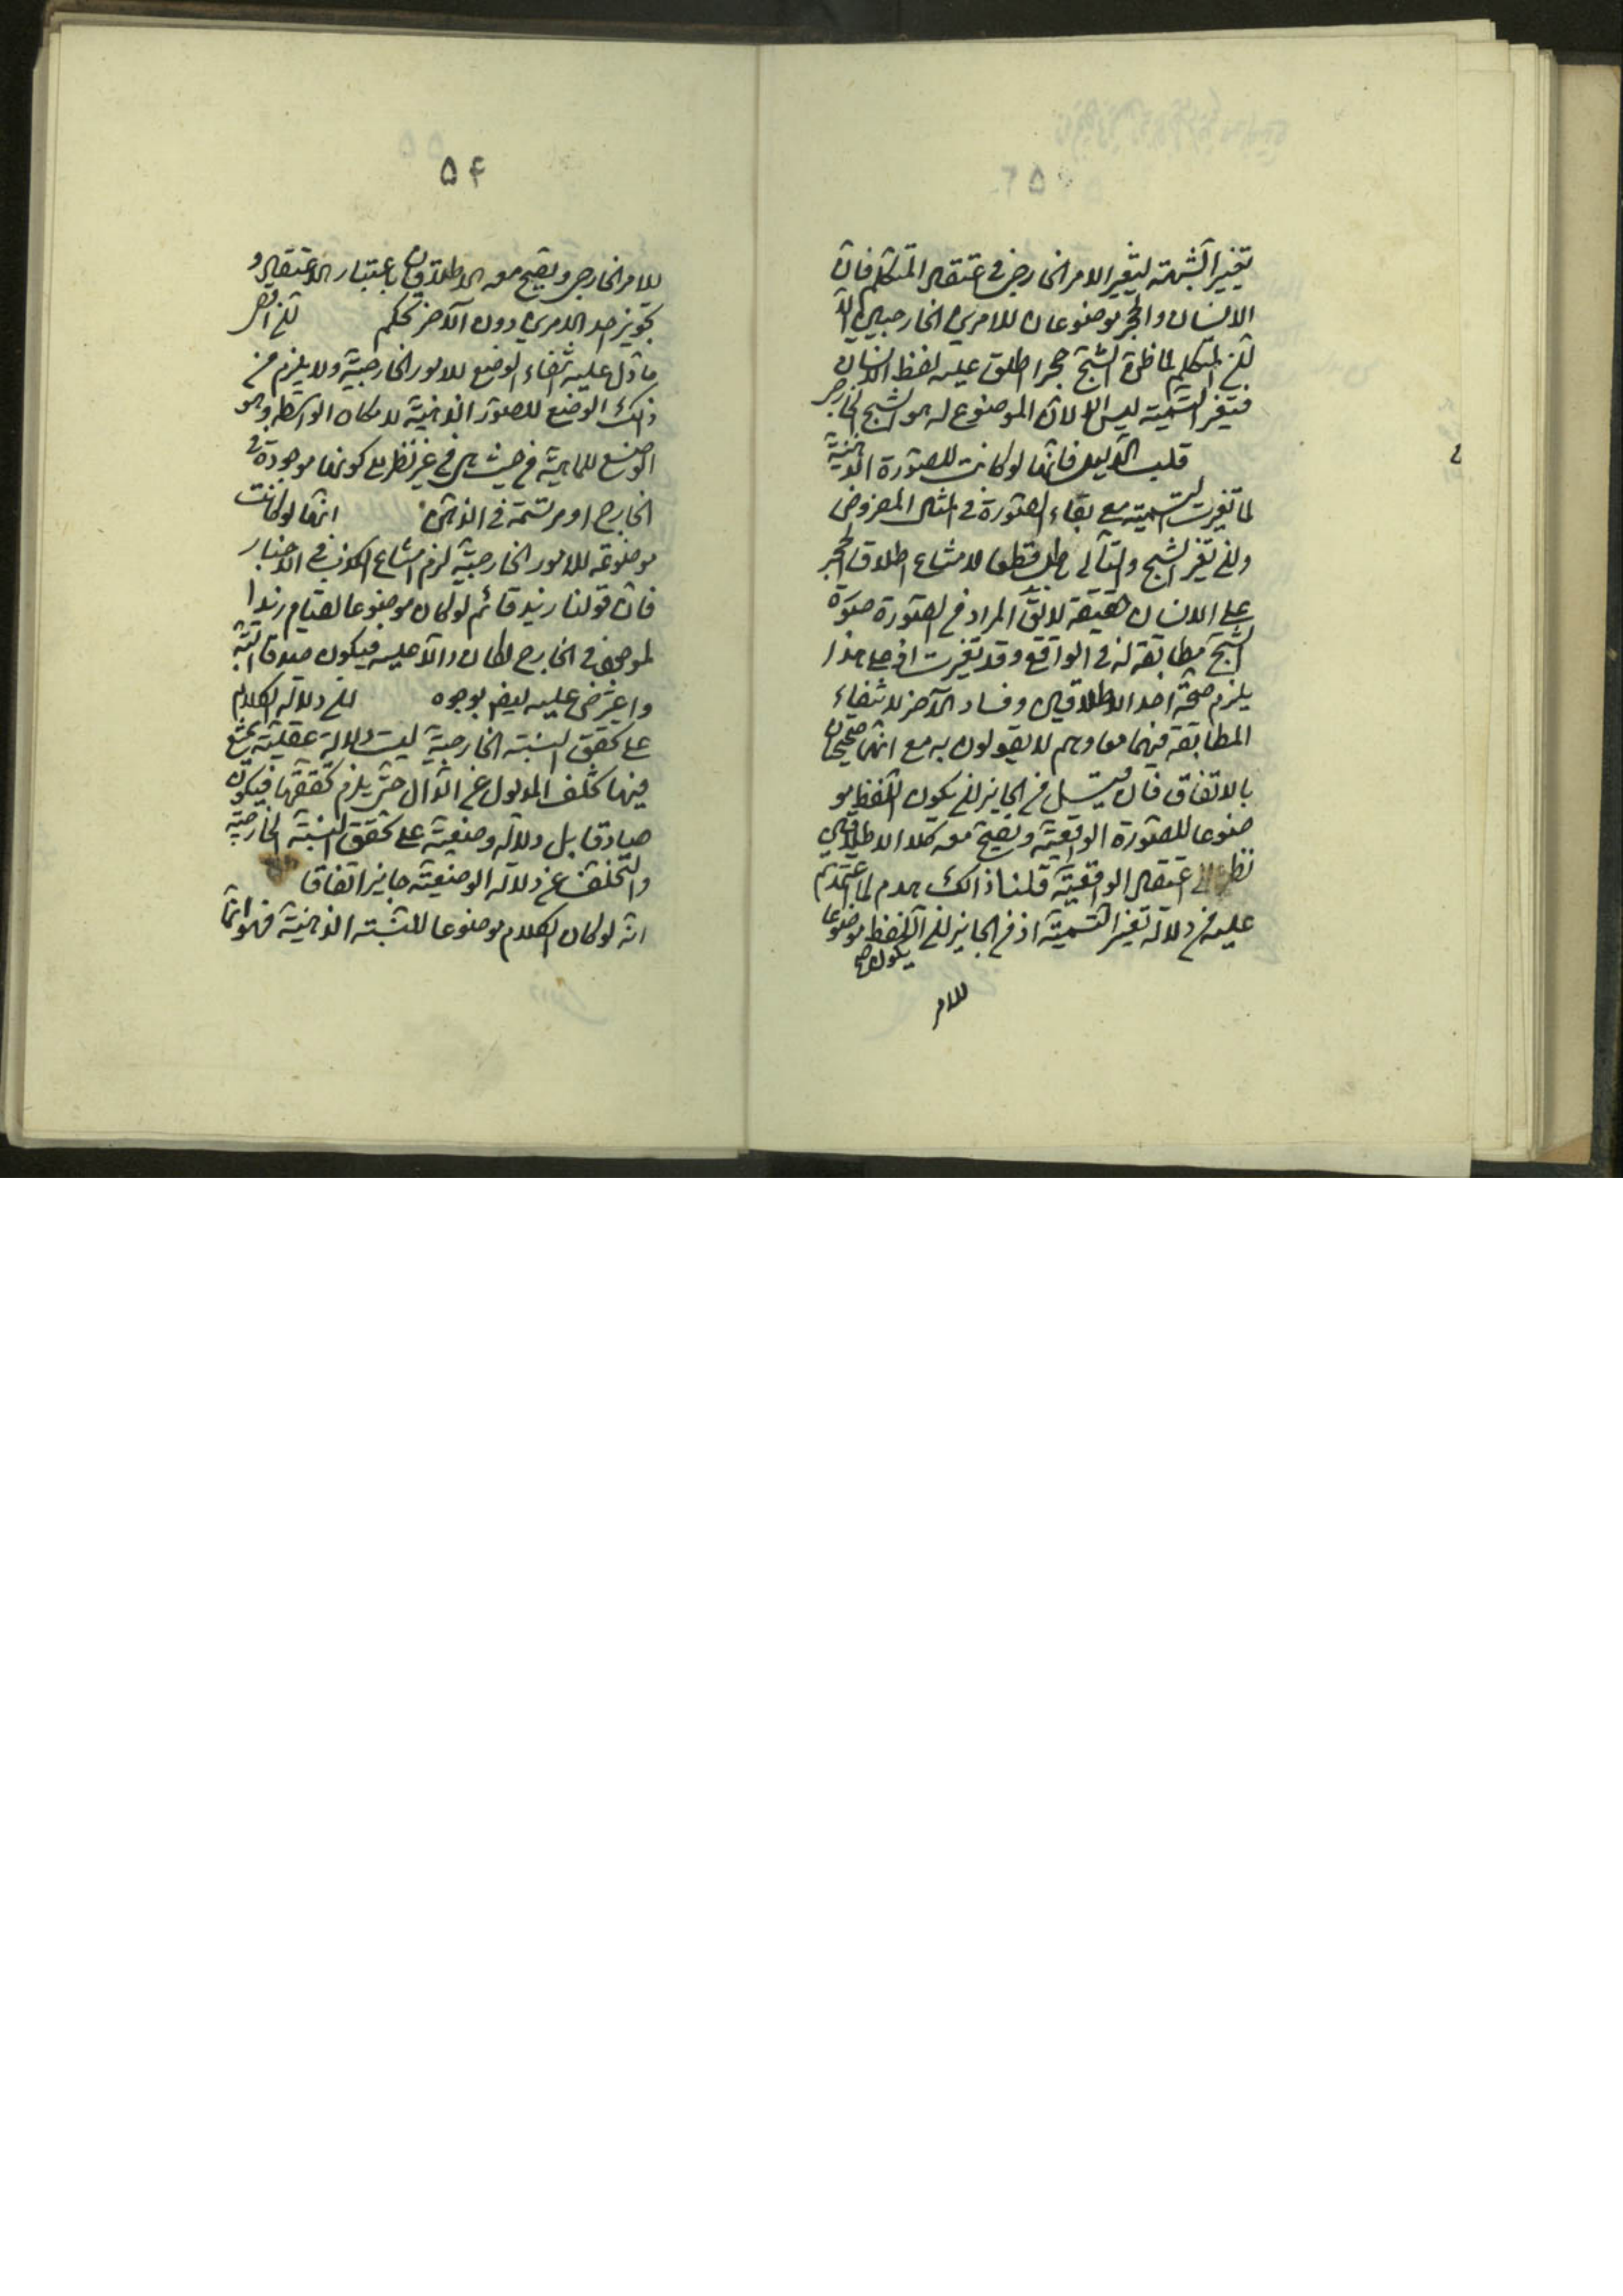 تغيير التسمية لتغير الامر الخارجي في اعتقاد المتكلم فان
الانسان والحجر موضوعان للامرين الخارجيين الا
ان المتكلم لما ظن الشبح حجرا اطلق عليه لفظ الانسان
فتغير التسمية ليس الا لان الموضوع له هو الشبح الخارجي
قلب الدليل فانها لو كانت للصورة الذهنية
لما تغيرت التسمية مع بقاء الصورة في المثال المفروض
وان تغير الشبح والتالي باطل قطعا لامتناع اطلاق الحجر
على الانسان حقيقة لا يق المراد من الصورة صورة
الشبح مطابقة له في الواقع وقد تغيرت اذ على هذا
يلزم صحة احد الاطلاقين وفساد الآخر لانتفاء
المطابقة فيهما معا وهم لا يقولون به مع انهما صحيحان
بالاتفاق فان قيل من الجايز ان يكون اللفظ مو
ضوعا للصورة الواقعية ويصح معه كلا الاطلاقين
نظرا الى اعتقاد الواقعية قلنا ذالك هدم لما اعتمدتم
عليه من دلالة تغير التسمية اذ من الجايز ان اللفظ موضوعا
يكون صح
للامر
۵۴
للامر الخارجي ويصح معه الاطلاقان باعتبار الاعتقاد و
تجويز احد الامرين دون الآخر تحكم ان اقصى
ما دل عليه انتفاء الوضع للامور الخارجية ولا يلزم من
ذالك الوضع للصور الذهنية لامكان الواسطه وهو
الوضع للماهية من حيث هي من غير نظر الى كونها موجودة في
الخارج او مرتسمة في الذهن انها لو كانت
موضوعة للامور الخارجية لزم امتناع الكذب في الاخبار
فان قولنا زيد قائم لو كان موضوعا لقيام زيد ا
لموجود في الخارج لكان دالا عليه فيكون صدقا البتة
واعترض عليه ايض بوجوه ان دلالة الكلام
على تحقق النسبة الخارجية ليست دلالة عقلية يمتنع
فيها تخلف المدلول عن الدال حتى يلزم تحققها فيكون
صادقا بل دلالة وضعية على تحقق النسبة الخارجية
والتخلف عن دلالة الوضعية جايز اتفاقا
انه لو كان الكلام موضوعا للنسبة الذهنية فهو انما